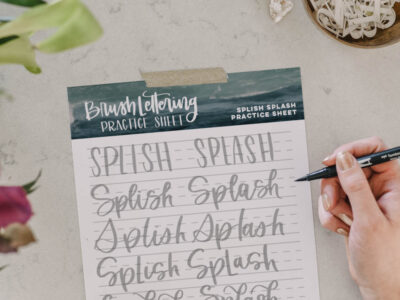 Brush Lettering
PRACTICE SHEET
SPLISH SPLASH
PRACTICE SHEET
SPLISH SPLASH
Splish Splash
Splish Splash
Splish Splash
Splish Splash